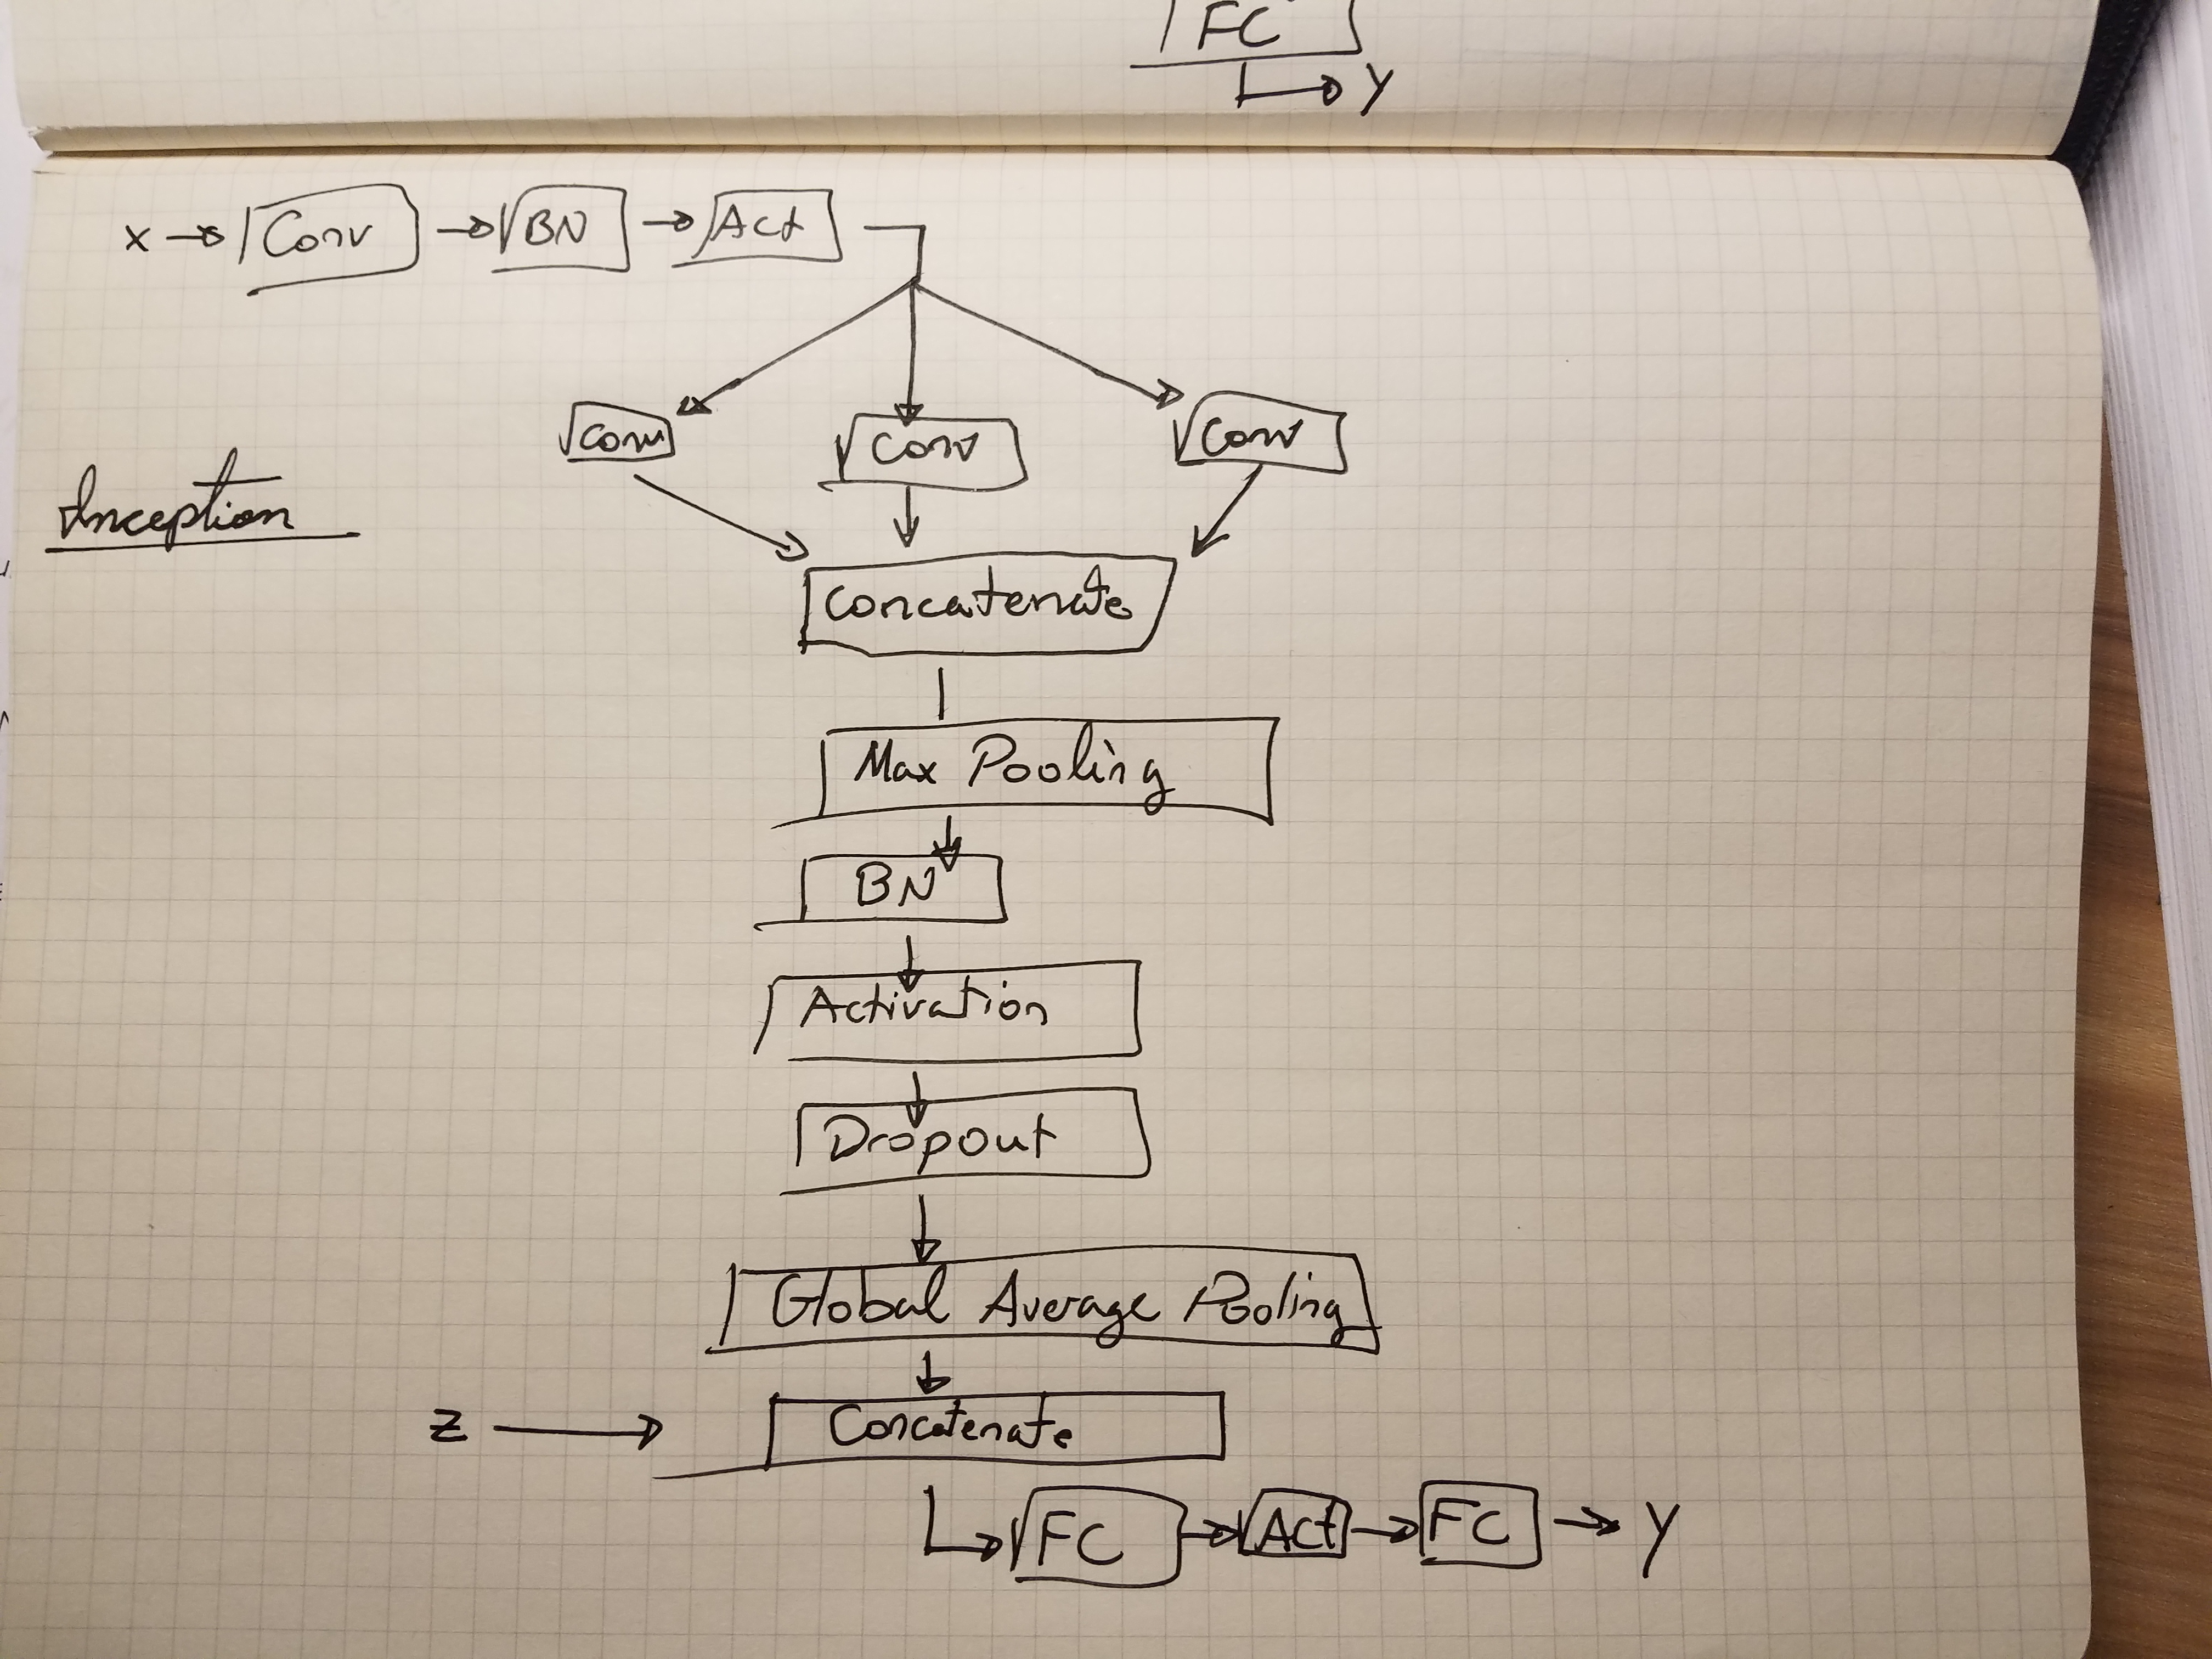 FC
y
x Conv BN Act
Conv Conv Conv
Inception
Concatenate
Max Pooling
BN
Activation
Dropout
Global Average Pooling
z Concatenate
FC Act FC y